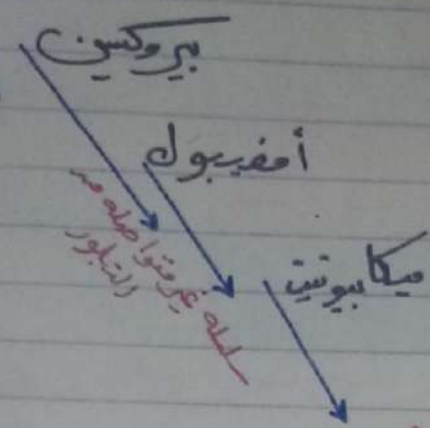 بيروكسين
أمفيبول
ميكا بيوتيت
سلسله غير متواصله من
التبلور